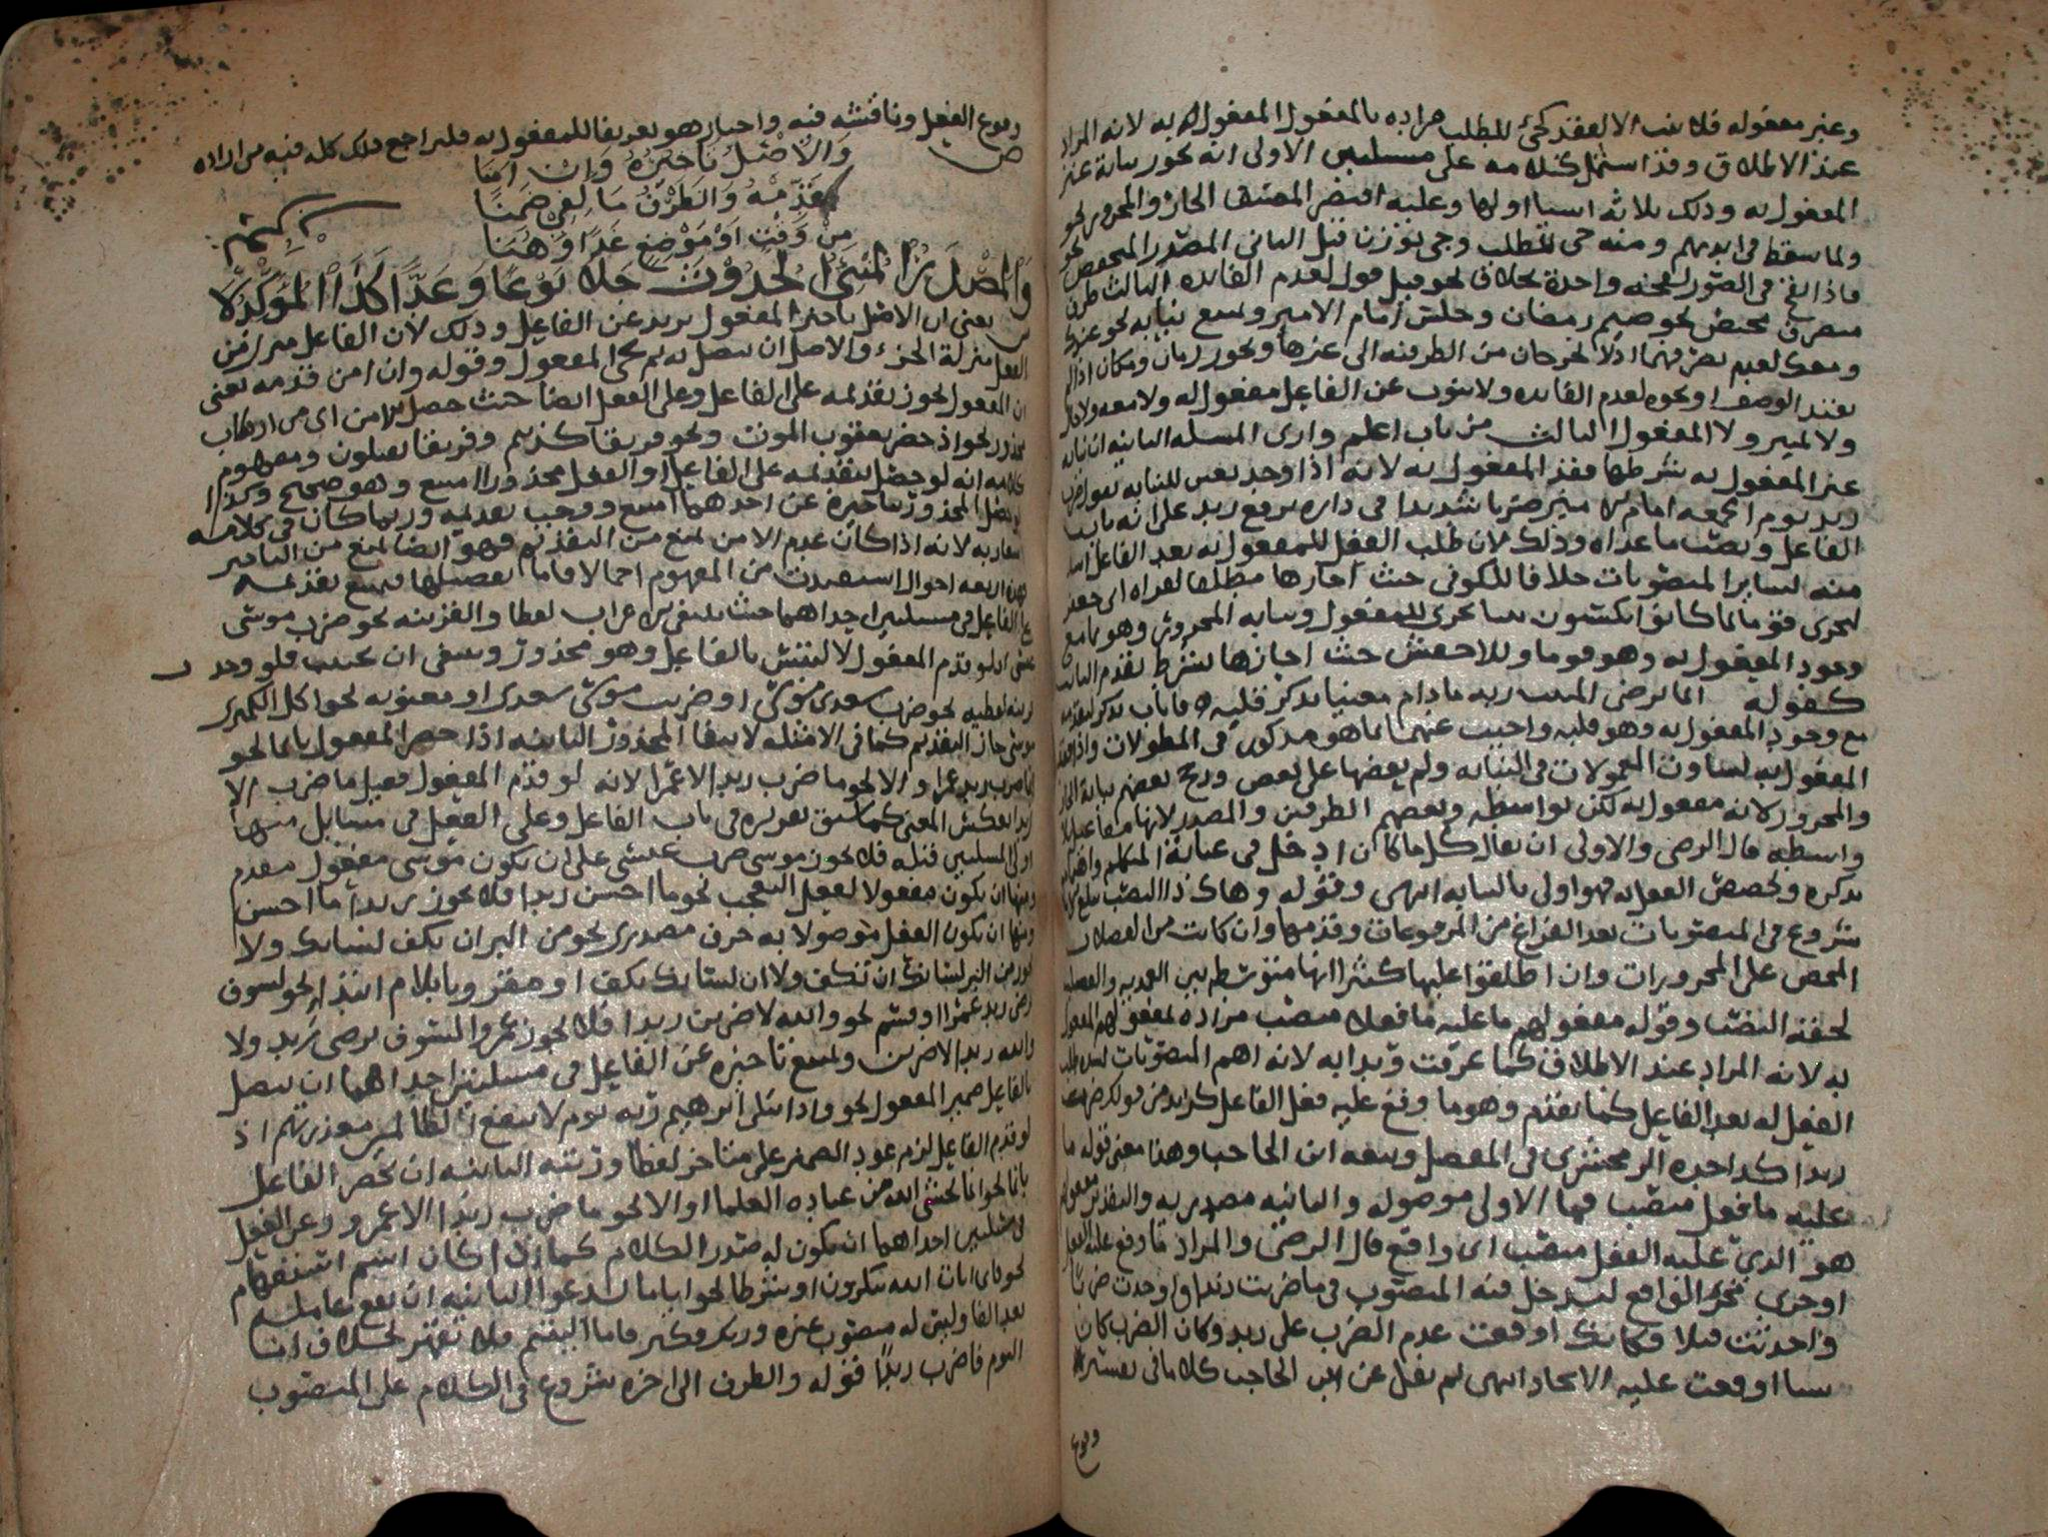 وغير مفعوله فلا ينب الا لفقد كجئ للمطلب مراده بالمفعول المفعول به لانه المراد
عند الاطلاق وقد اشتمل كلامه على مسئلتين الاولى انه يجوز نيابة غير
المفعول به وذلك ثلاثة اشيا اولها وعليه اقتصر المصنف الجار والمجرور نحو
ولما سقط في ايديهم ومنه جي للمطلب الثاني المصدر المختص نحو
فاذا نفخ في الصور نفخة واحدة بخلاف نحو قيل قول لعدم الفائده الثالث ظرف
متصرف مختص نحو صيم رمضان وجلس امام الامير ويمتنع نيابه نحو عندك
ومعك لعدم تصرفهما اذ لا يخرجان من الظرفيه الى غيرها ونحو زمان ومكان اذا لم
يقيد الوصف او نحوه لعدم الفائده ولا ينوب عن الفاعل مفعول له ولا معه ولا حال
ولا تمييز ولا المفعول الثالث من باب اعلم وارى المسئله الثانيه ان نيابه
غير المفعول به شرطها فقد المفعول به لانه اذا وجد تعين للنيابه تقول ضرب
زيد يوم الجمعه امام الامير ضربا شديدا في داره برفع زيد على انه نايب
الفاعل ونصب ما عداه وذلك لان طلب الفعل للمفعول به بعد الفاعل اشد
منه لساير المنصوبات خلافا للكوفي حيث اجازها مطلقا لقراه ابي جعفر
ليجزى قوما بما كانوا يكسبون ببنا يجزى للمفعول ونيابه المجرور وهو بما مع
وجود المفعول به وهو قوما وللاخفش حيث اجازها بشرط تقدم النايب
كقوله انما يرضي المنيب ربه ما دام معنيا بذكر قلبه فاناب بذكر لتقدمه
مع وجود المفعول به وهو قلبه واجيب عنهما بما هو مذكور في المطولات واذا فقد
المفعول به تساوت المعمولات في النيابه ولم يفضل بعضها على بعض ورجح بعضهم نيابة الجار
والمجرور لانه مفعول به لكن بواسطه وبعضهم الظرفين والمصدر لانها مفاعيل بلا
واسطه قال الرضى والاولى ان يقال كل ما كان ادخل في عناية المتكلم واهتمامه
بذكره وتخصص الفعل به فهو اولى بالنيابه انتهى وقوله وهاك ذا النصب
شروع في المنصوبات بعد الفراغ من المرفوعات وقدمها وان كانت من الفضلات
المحض على المجرورات وان اطلقوا عليها كثيرا انها متوسطه بين العمديه والفضله
لخفته النصب وقوله مفعولهم ما عليه فاعل منصب مراده بمفعولهم المفعول
به لانه المراد عند الاطلاق كما عرفت وبدا به لانه اهم المنصوبات لشده طلب
الفعل له بعد الفاعل كما تقدم وهو ما وقع عليه فعل الفاعل كزيد من قولك ضربت
زيدا كذا حده الزمخشري في المفصل وتبعه ابن الحاجب وهذا معنى قوله ما
عليه ما فعل منصب فما الاولى موصوله والثانيه مصدريه والتقدير مفعولهم
هو الذي عليه الفعل منصب اي واقع قال الرضى والمراد ما وقع عليه الفعل
او جرى مجرى الواقع ليدخل فيه المنصوب في ما ضربت زيدا واوجدت ضربا
واحدثت قتلا فكانك اوقعت عدم الضرب على زيد وكان الضرب كان
شيا اوقعت عليه الايجاد انتهى ثم نقل عن ابن الحاجب كلاما في تفسير
وقوع
وقوع الفعل وناقشه فيه واختار هو تعريفا للمفعول به فليراجع ذلك كله فيه من اراده
ص
وَالاصْلُ تَاخيرُهُ وَان امنَا
قَدِّمْهُ وَالظَّرْفُ مَا لِفي ضَمنَا
مِنْ وَقْتٍ اَوْ مَوْضِعٍ غَدًا وَهُنَا
وَالْمَصْدَرُ الْمُنْبِئ الْحُدُوْثَ جَلا نَوْعًا وَعَدًّا كَذَا الْمُؤَكِّدُ لَا
ش يعني ان الاصل تاخير المفعول به عن الفاعل وذلك لان الفاعل منزل من
الفعل منزلة الجزء والاصل ان يتصل به ثم يجئ المفعول وقوله وان امن قدمه يعني
ان المفعول يجوز تقديمه على الفاعل وعلى الفعل ايضا حيث حصل الامن اي من ارتكاب
محذور نحو اذ حضر يعقوب الموت ونحو فريقا كذبتم وفريقا تقتلون ومفهوم
كلامه انه لو حصل بتقديمه على الفاعل او الفعل محذور امتنع وهو صحيح وكذا
لو حصل المحذور بتاخيره عن احدهما امتنع ووجب تقديمه وربما كان في كلامه
اشعار به لانه اذا كان عدم الامن يمنع من التقديم فهو ايضا يمنع من التاخير
فهذه اربعه احوال استفيدت من المفهوم اجمالا فاما تفصيلها فيمتنع تقديمه
على الفاعل في مسئلتين احداهما حيث ينتفي الاعراب لفظا والقرينه نحو ضرب موسى
عيسى اذ لو قدم المفعول لالتبس بالفاعل وهو محذور وينبغي ان يجتنب فلو وجد
قرينه لفظيه نحو ضرب سعدى موسى او ضربت موسى سعدى او معنويه نحو اكل الكمثرى
موسى جاز التقديم كما في الامثله لانتفا المحذور الثانيه اذا حصر المفعول بانما نحو
انما ضرب زيد عمرا او الا نحو ما ضرب زيد الا عمرا لانه لو قدم المفعول فقيل ما ضرب الا
زيد انعكس المعنى كما سبق تقريره في باب الفاعل وعلى الفعل في مسايل منها
اولى المسئلتين قبله فلا يجوز موسى ضرب عيسى على ان يكون موسى مفعول مقدم
ومنها ان يكون مفعولا لفعل التعجب نحو ما احسن زيدا فلا يجوز زيدا ما احسن
ومنها ان يكون الفعل موصولا به حرف مصدري نحو من البر ان تكف لسانك ولا
يجوز من البر لسانك ان تكف ولا ان لسانك تكف او مقترونا بلام ابتدا نحو لسوف
يرضى زيد عمرا او قسم نحو والله لاضربن زيدا فلا يجوز عمرا لسوف يرضى زيد ولا
والله زيدا لاضربن ويمتنع تاخيره عن الفاعل في مسئلتين احداهما ان يتصل
بالفاعل ضمير المفعول نحو واذ ابتلى ابرهيم ربه يوم لا ينفع الظالمين معذرتهم اذ
لو قدم الفاعل لزم عود الضمير على متاخر لفظا ورتبه الثانيه ان يحصر الفاعل
بانما نحو انما يخشى الله من عباده العلما او الا نحو ما ضرب زيدا الا عمرو وعن الفعل
في مسئلتين احداهما ان يكون له صدر الكلام كما اذا كان اسم استفهام
نحو فاي ايات الله تنكرون او شرطا نحو ايا ما تدعوا الثانيه ان يقع عامله
بعد الفا وليس له منصوب غيره وربك فكبر فاما اليتيم فلا تقهر بخلاف اما
اليوم فاضرب زيدا قوله والظرف الى اخره شروع في الكلام على المنصوب